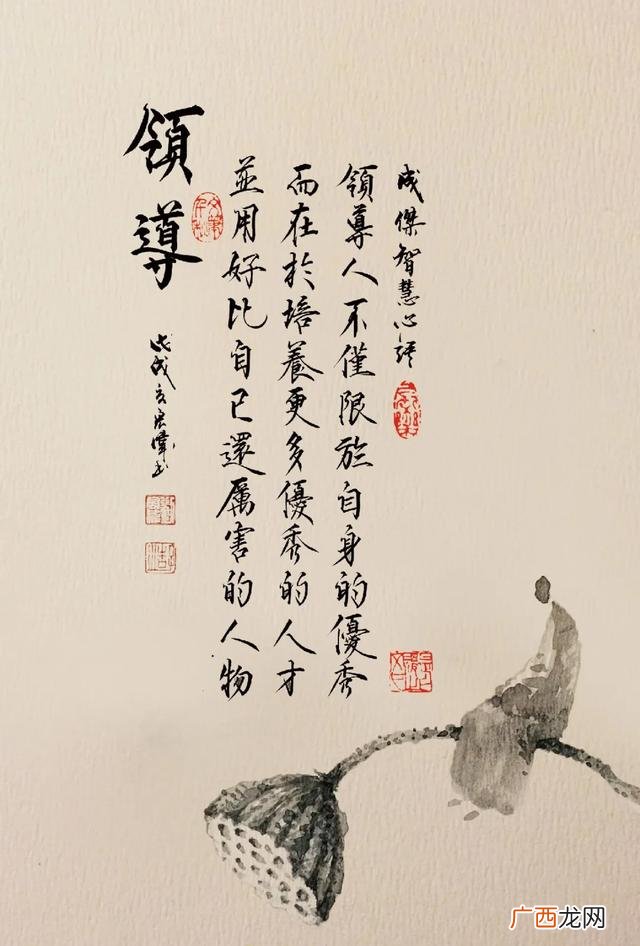 成傑智慧心語
領導人不僅限於自身的優秀
而在於培養更多優秀的人才
並用好比自己還厲害的人物
領導
戊戌
广西龙网